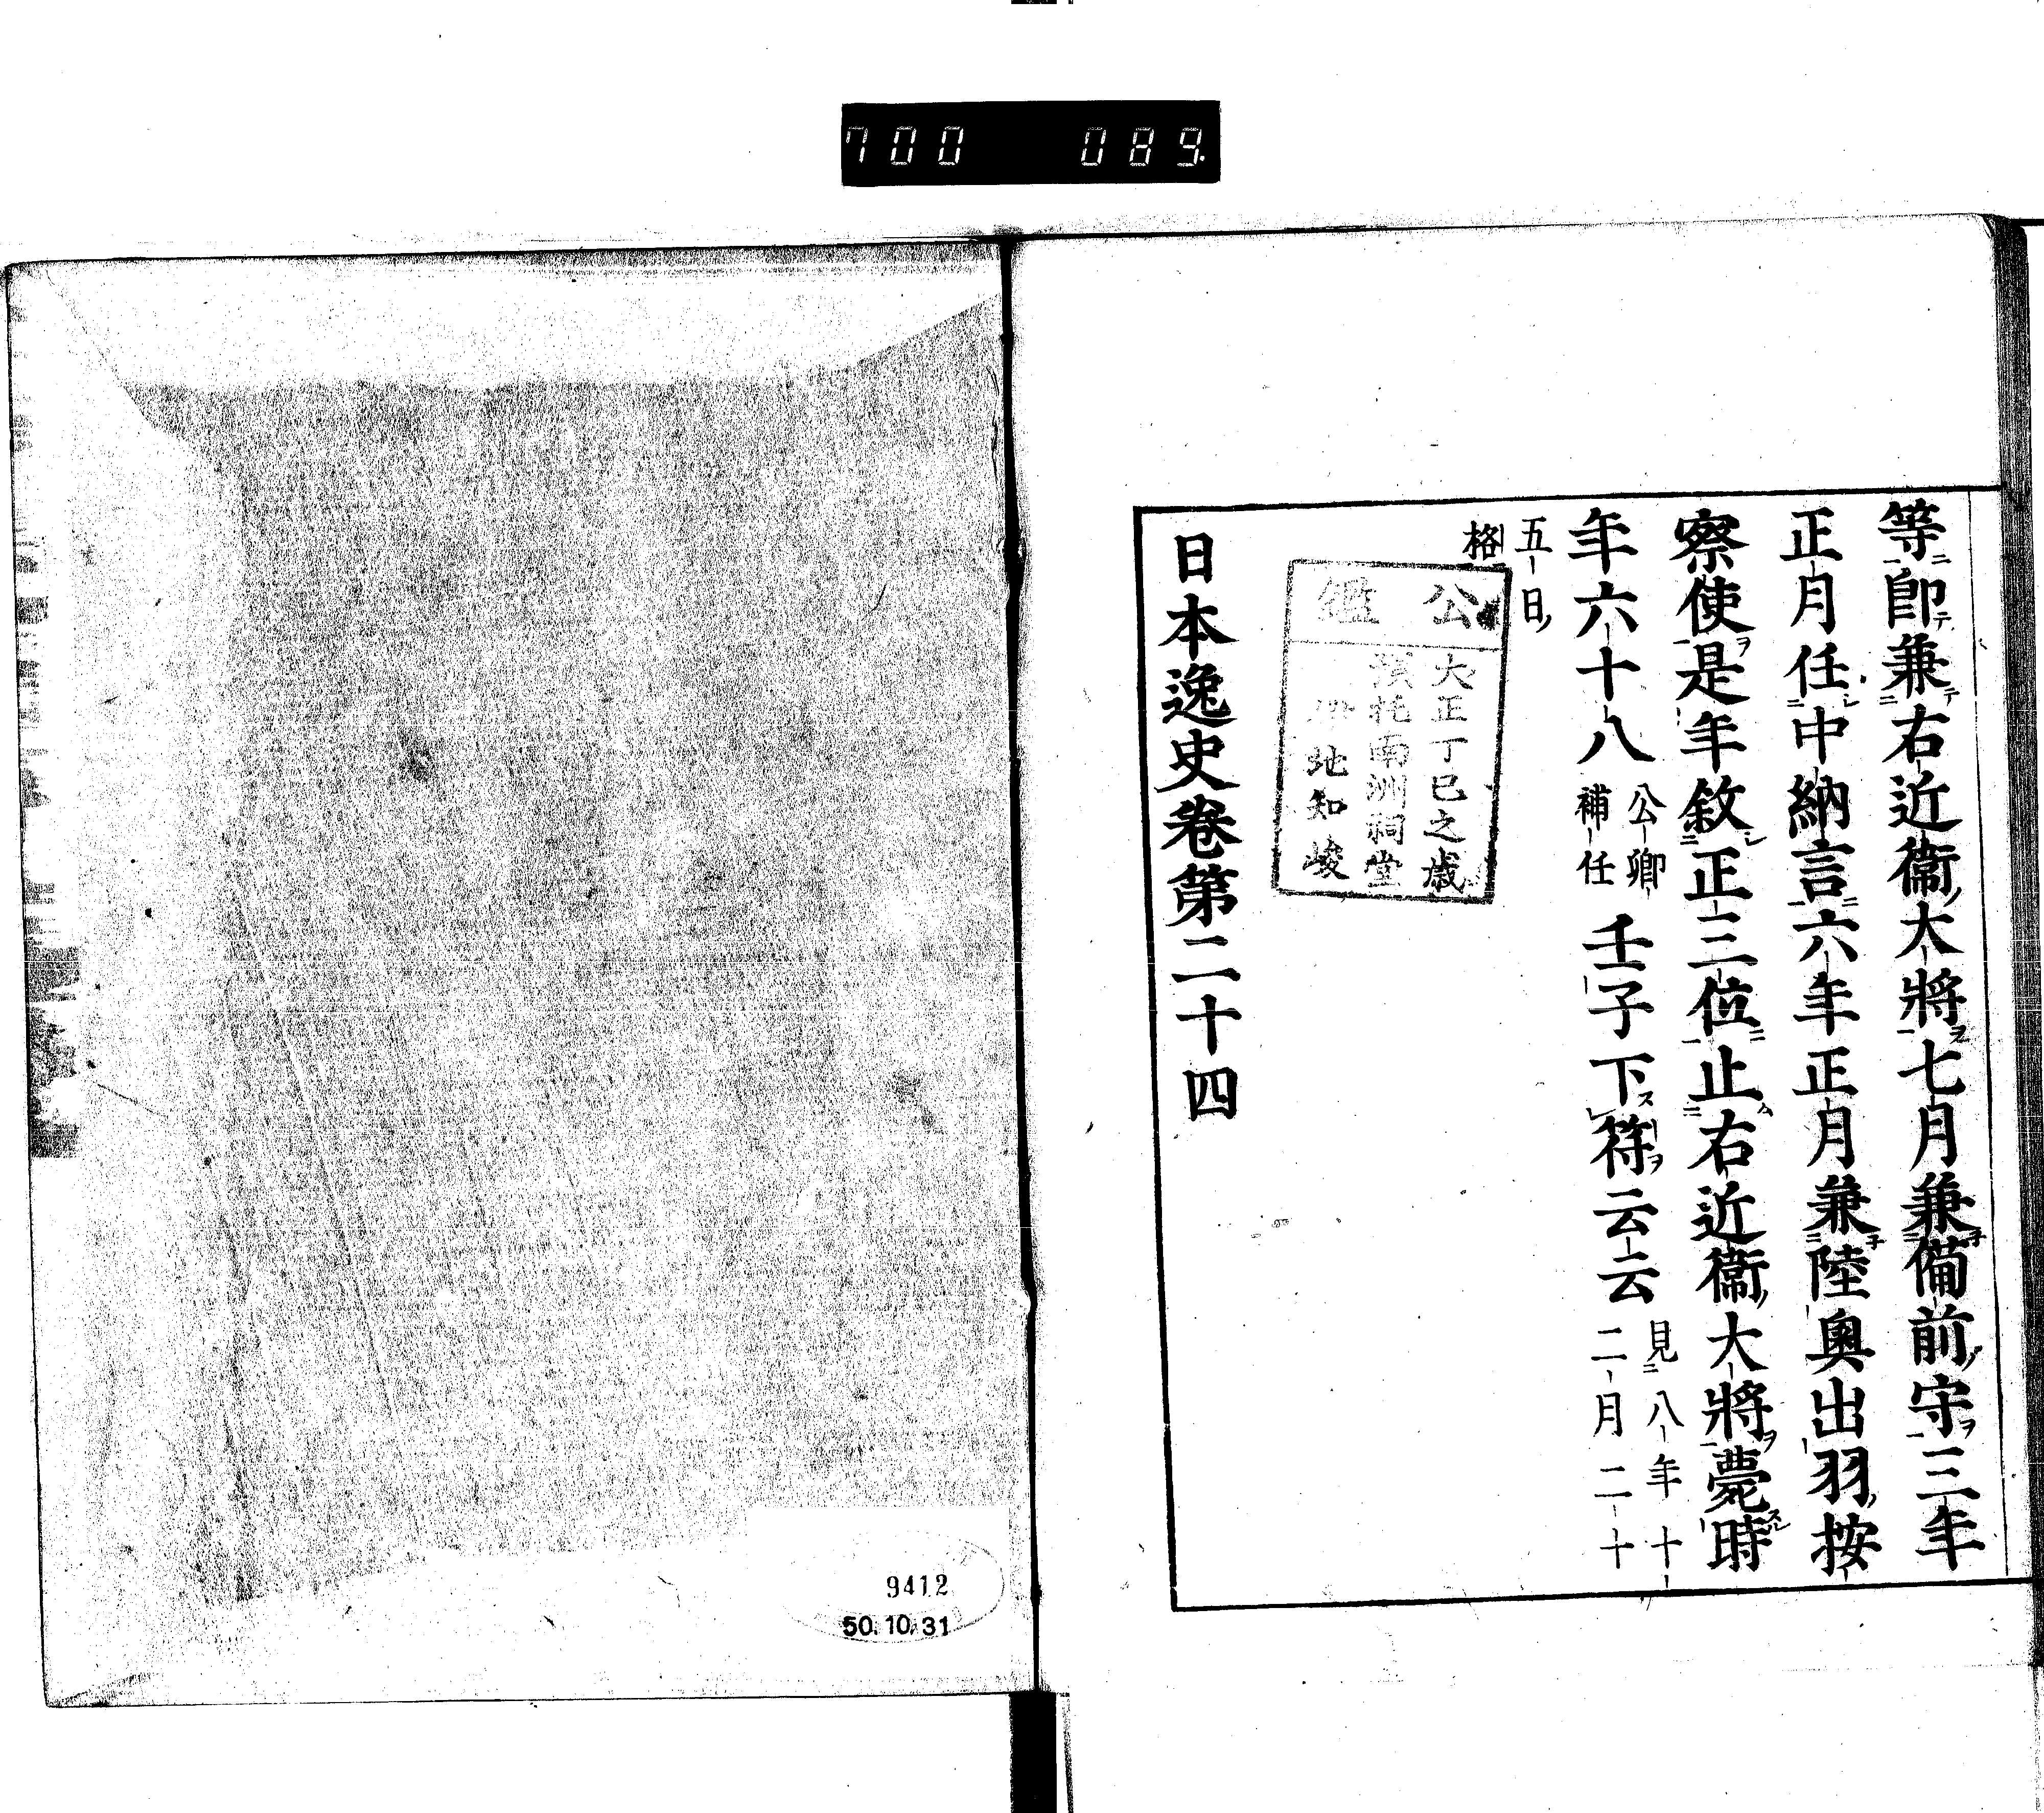 700 089.
等即兼右近衞大將七月兼備前守三年
正月任中納言六年正月兼陸奧出羽按
察使是年敘正三位止右近衞大將薨時
年六十八公卿補任壬子下符云云見八年十二月二十
五日格
公鑑
大正丁巳之歳
南洲祠堂
地知峻
日本逸史卷第二十四
9412
50.10.31